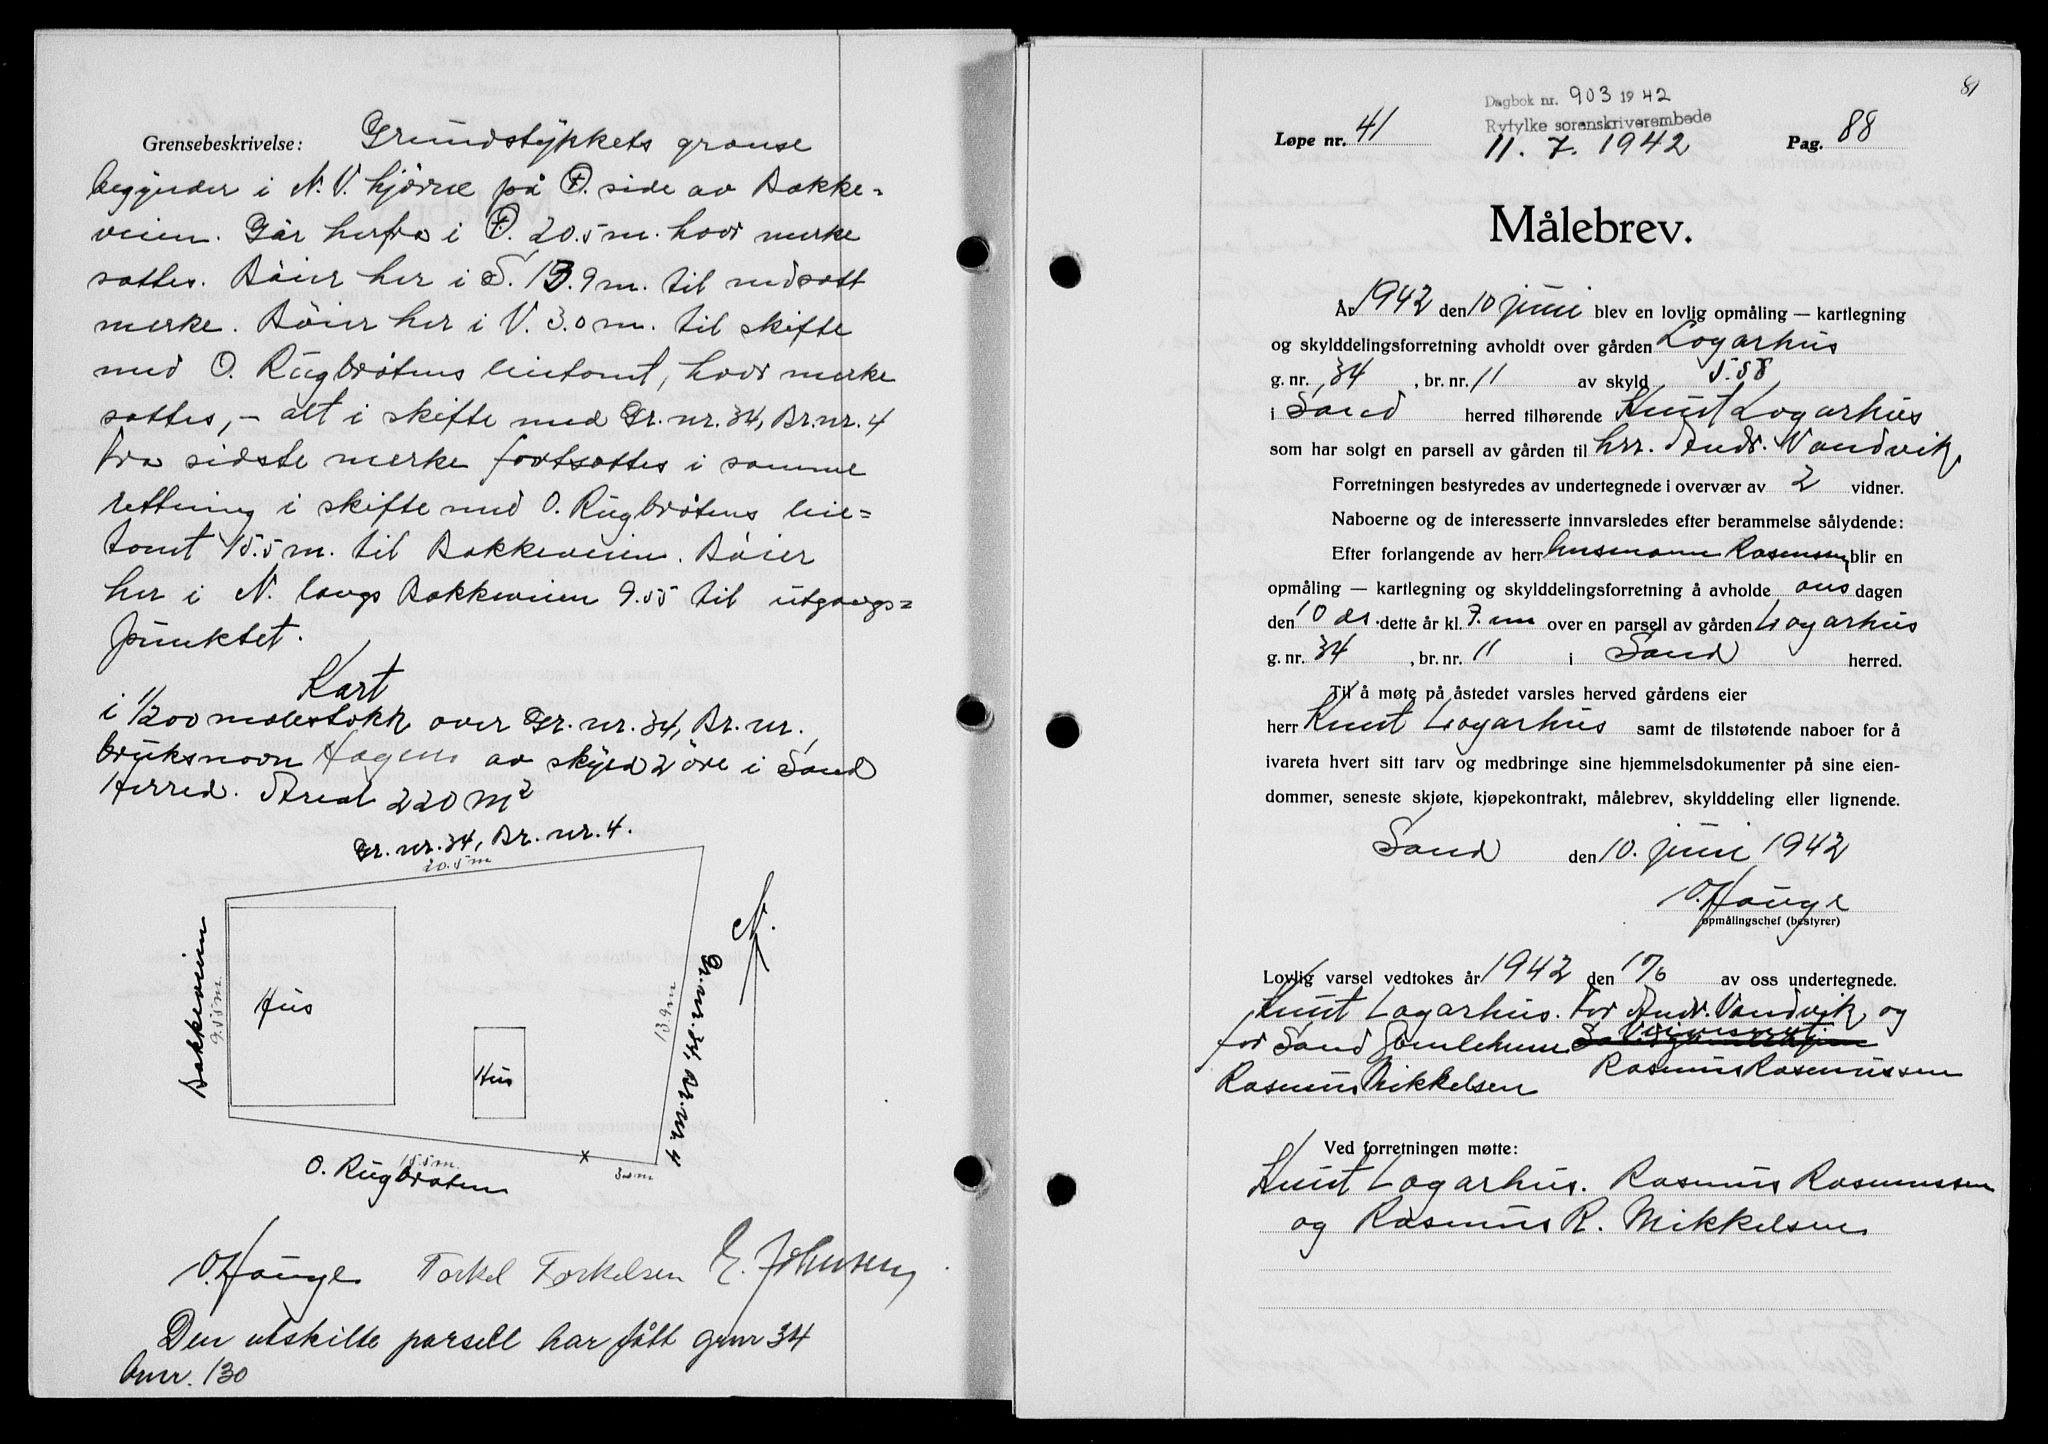 Grensebeskrivelse: Grundstykkets grense
begynder i N.V. hjørne på Ø. side av Bakke=
veien. Går herfra i Ø. 20.5 m. hvor merke
sattes. Bøier her i S. 13.9 m. til nedsatt
merke. Bøier her i V. 3.0 m. til skifte
med O. Rugbrøtens leietomt, hvor merke
sattes, – alt i skifte med Gr. nr. 34, Br. nr. 4
fra sidste merke fortsættes i samme
rettning i skifte med O. Rugbrøtens leie=
tomt 15.5 m. til Bakkeveien. Bøier
her i N. langs Bakkeveien 9.55 til utgangs=
punktet.
Kart
i 1/200 målestokk over Gr. nr. 34, Br. nr.
bruksnavn Hagen av skyld 2 øre i Sand
Herred. Areal 220 M²
Gr. nr. 34, Br. nr. 4.
20.5 m
Bakkeveien
9.55 m.
Hus
Hus
13.9 m
Gr. nr. 34, Br. nr. 4
N.
15.5 m.
3.0 m
O. Rugbrøten
O. Hauge Torkel Torkelsen E. Johnsen
Den utskilte parsell har fått gnr 34
bnr. 130
81
Dagbok nr. 903 1942
Ryfylke sorenskriverembede
Løpe nr. 41 11. 7. 1942 Pag. 88
Målebrev.
År 1942 den 10 juni blev en lovlig opmåling — kartlegning
og skylddelingsforretning avholdt over gården Logarhus
g. nr. 34, br. nr. 11 av skyld 5.58
i Sand herred tilhørende Knut Logarhus
som har solgt en parsell av gården til hrr. Andr. Vandvik.
Forretningen bestyredes av undertegnede i overvær av 2 vidner.
Naboerne og de interesserte innvarsledes efter berammelse sålydende:
Efter forlangende av herr Rasmussen blir en
opmåling — kartlegning og skylddelingsforretning å avholde ons dagen
den 10 ds. dette år kl. 7. em over en parsell av gården Logarhus
g. nr. 34, br. nr. 11 i Sand herred.
Til å møte på åstedet varsles herved gårdens eier
herr Knut Logarhus samt de tilstøtende naboer for å
ivareta hvert sitt tarv og medbringe sine hjemmelsdokumenter på sine eien-
dommer, seneste skjøte, kjøpekontrakt, målebrev, skylddeling eller lignende.
Sand den 10. juni 1942
O. Hauge
opmålingschef (bestyrer)
Lovlig varsel vedtokes år 1942 den 10/6 av oss undertegnede.
Knut Logarhus. For Andr. Vandvik og
for Sand Gamlehem
Rasmus Mikkelsen Rasmus Rasmussen
Ved forretningen møtte:
Knut Logarhus. Rasmus Rasmussen
og Rasmus R. Mikkelsen